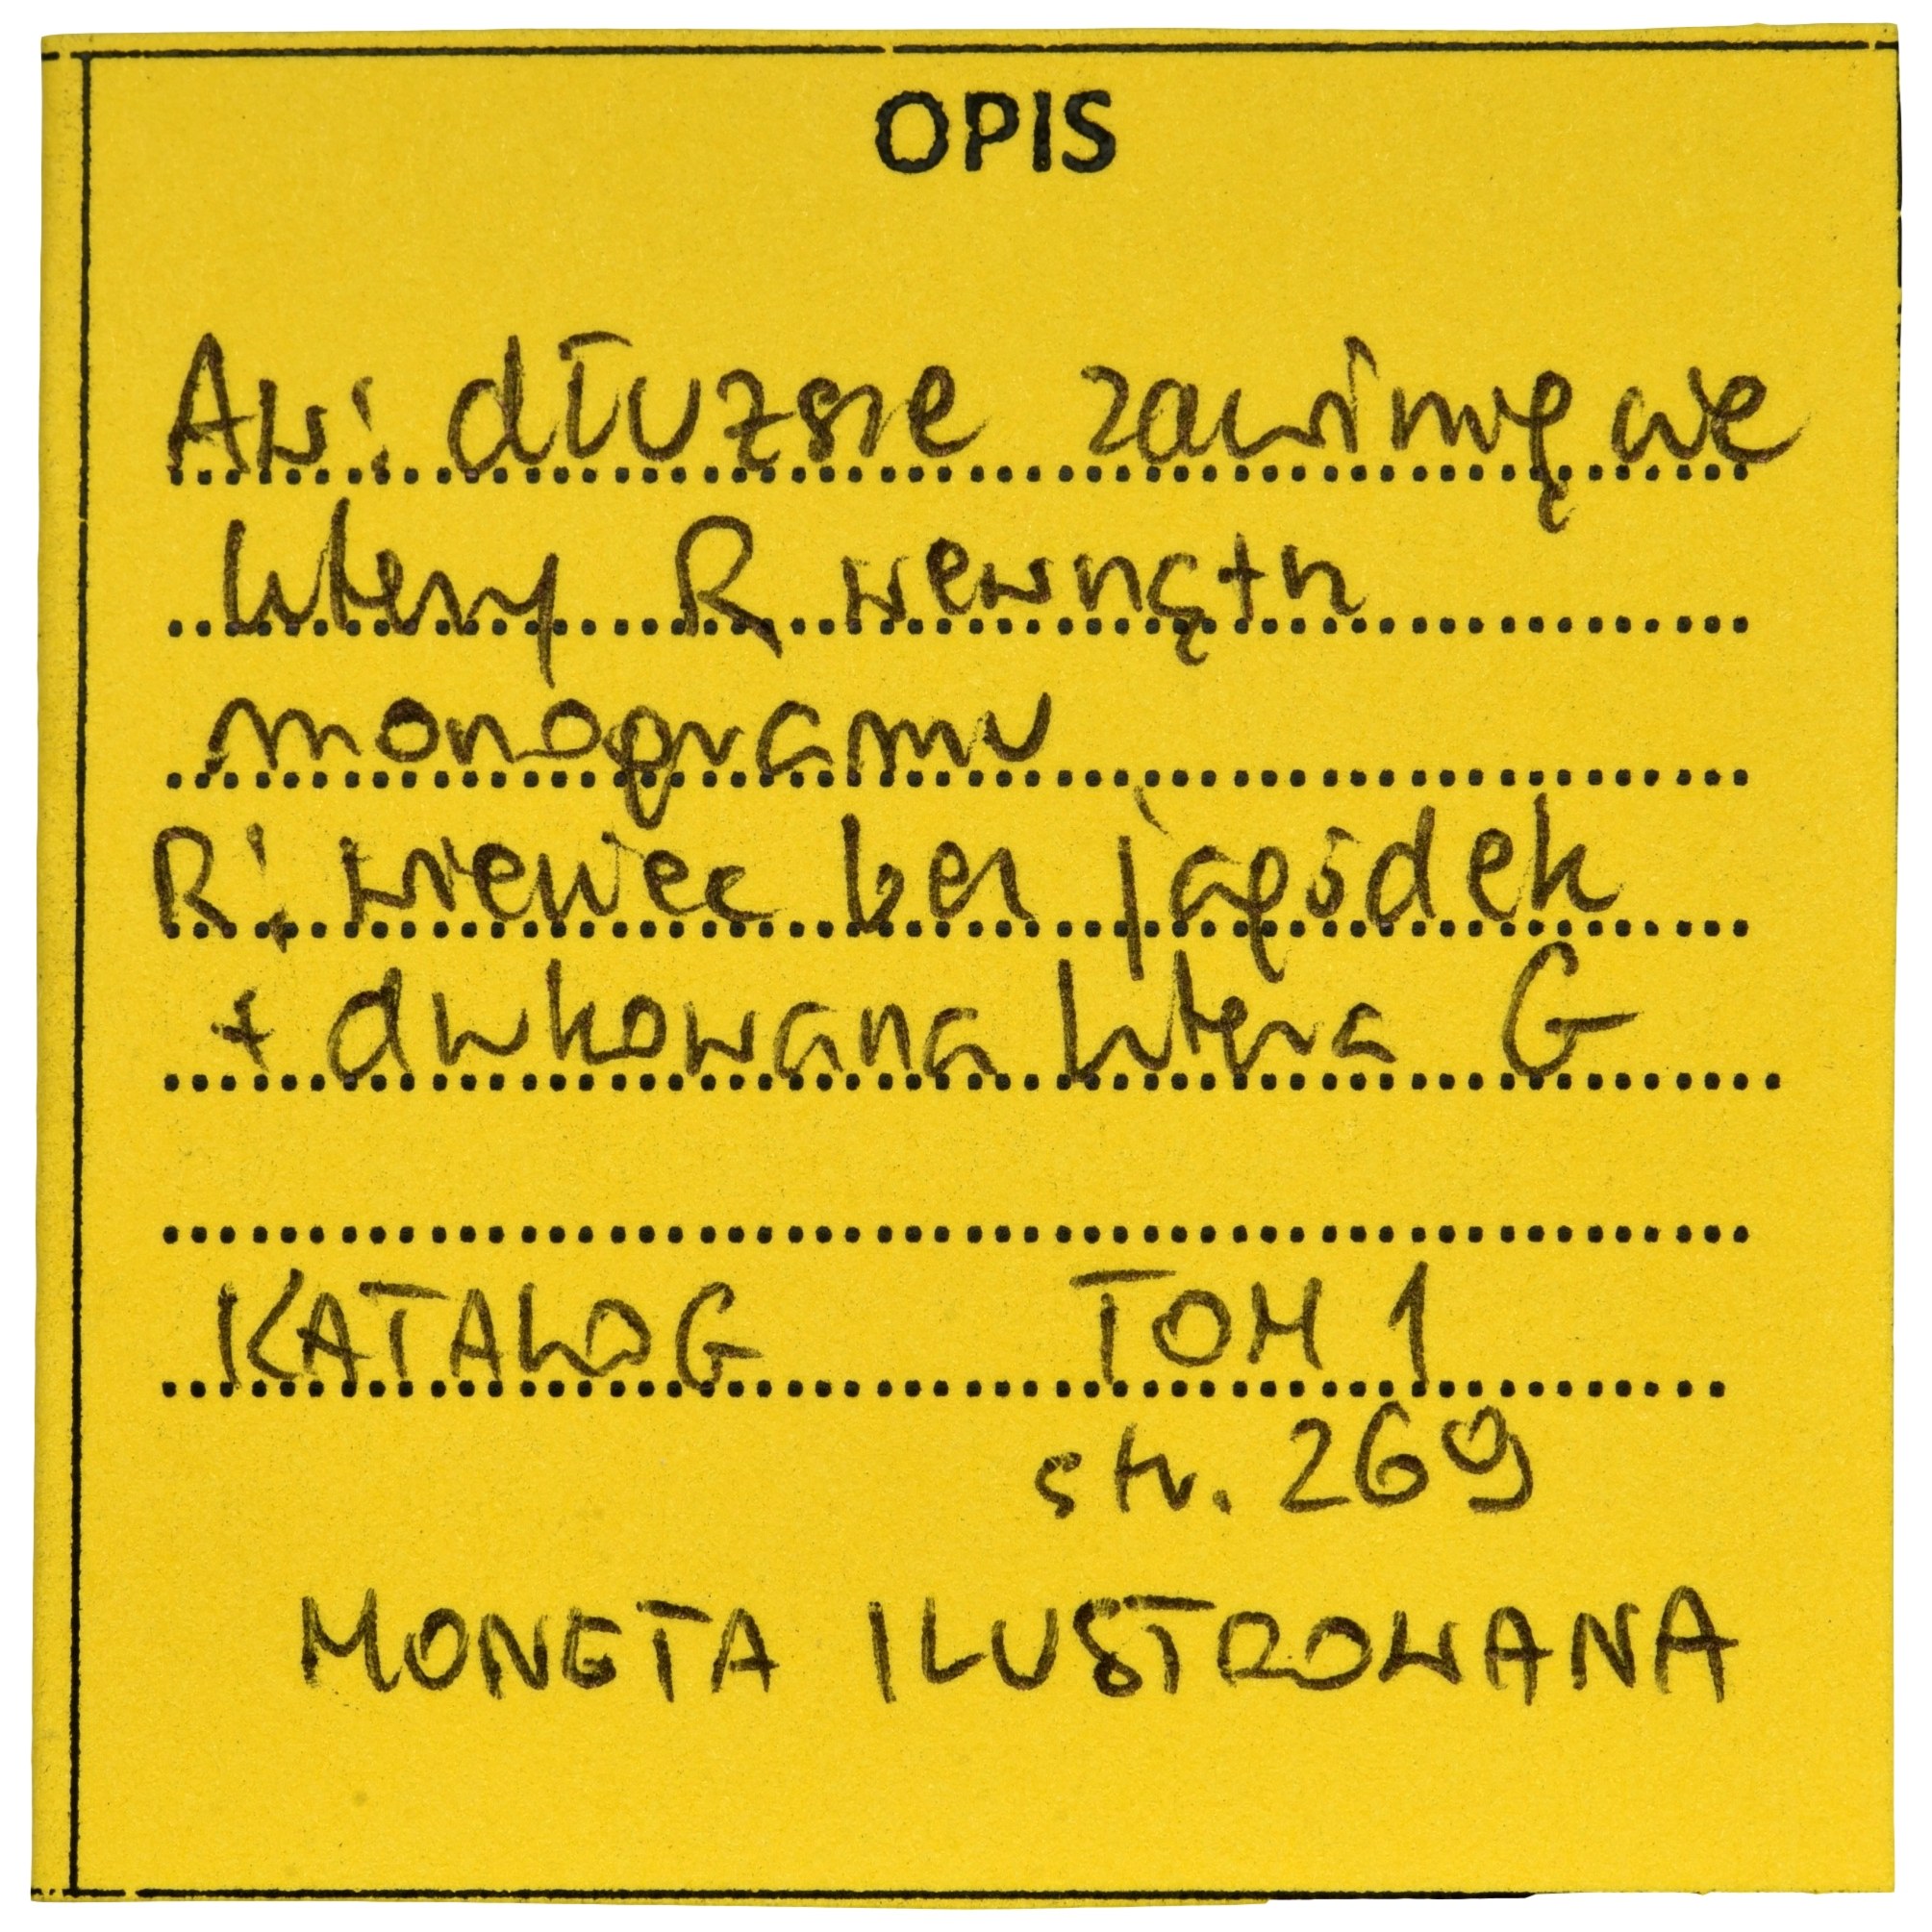 OPIS
Aw: dłuższe zawinięcie
litery R wewnątrz
monogramu
R: wieniec bez jagódek
+ drukowana litera G
KATALOG TOM 1
str. 269
MONETA ILUSTROWANA